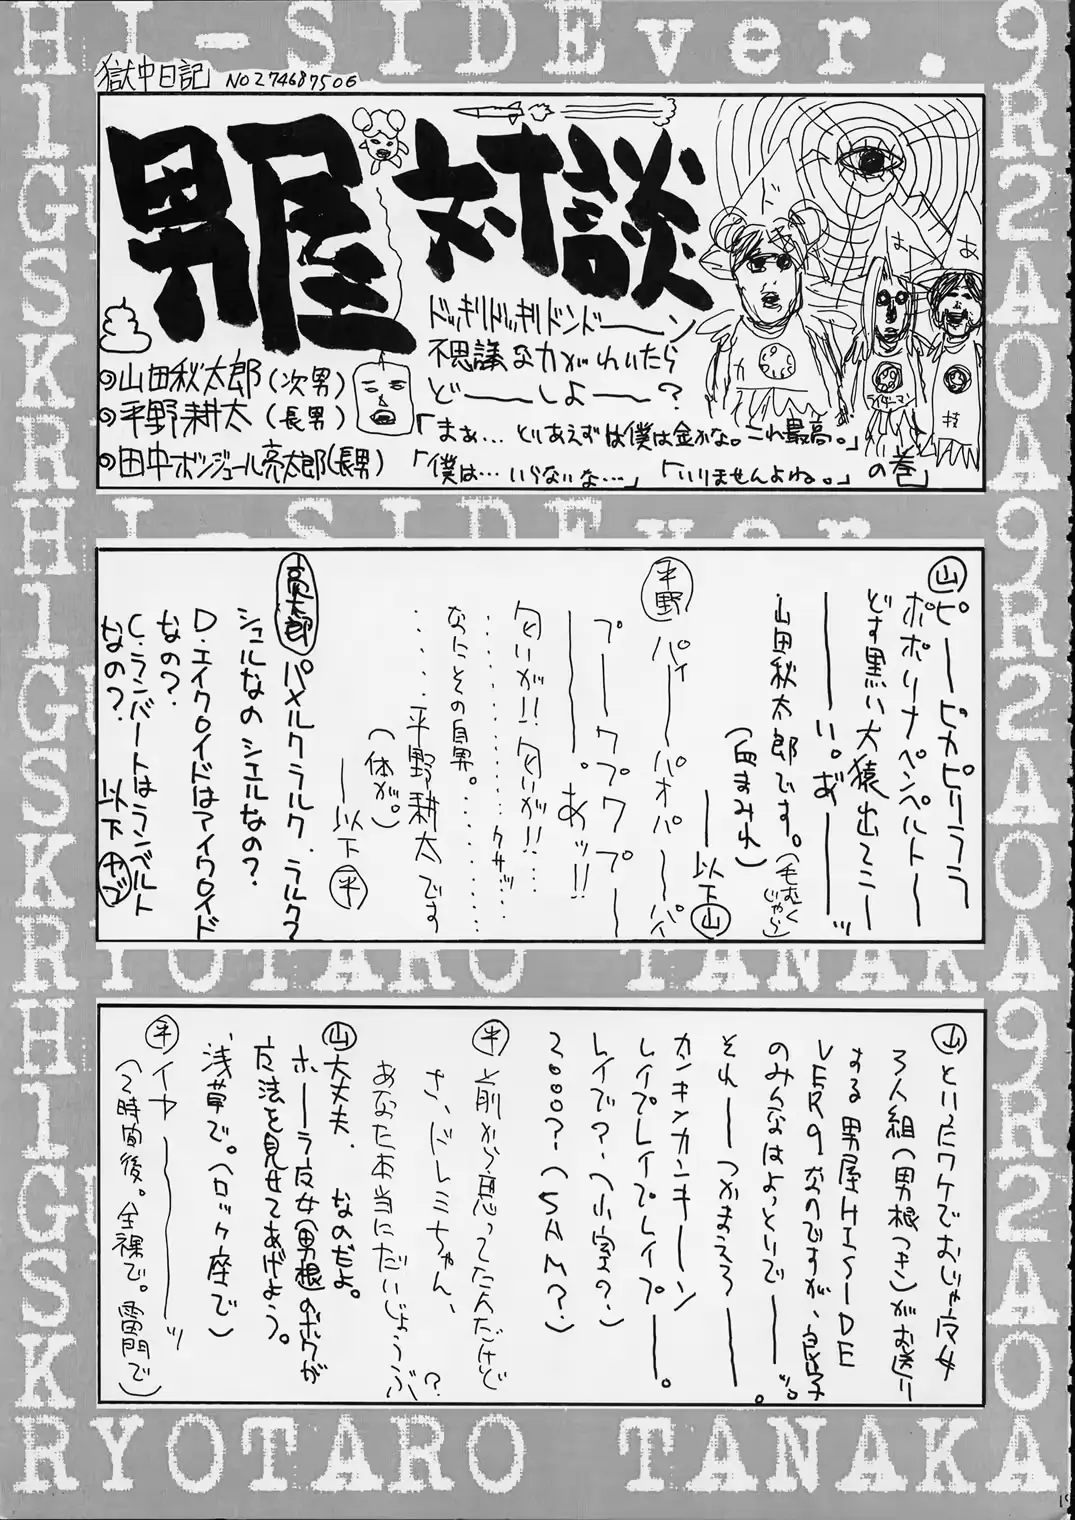 獄中日記 NO274687506
男屋対談
ドッキリドッキリドンドーーン
不思議な力がわいたら
どーーしよーー?
◎山田秋太郎(次男)
◎平野耕太(長男)
◎田中ボンジュール亮太郎(長男)
「まぁ…とりあえずは僕は金かな。これ最高。」
「僕は…いらないな…」「いりませんよね。」の巻
山 ピーーピカピリララ
ポポリナペンペルトー
どす黒い大猿出てこー
ーーい。あ゛ーーッ
山田秋太郎です。(毛むくじゃら)
(血まみれ)
ーー以下山
平野 パイーーパオパーーパ
プーークプワプー
ーーー。あッ!!
匂いが!!匂いが!!…
………クサッ……
なにとその自男。……
……平野耕太です
(体が。)
ーー以下平
亮太郎 パメルクラルク、ラルク?
シュルなのシエルなの?
D・エイクロイドはアイクロイド
なの?
C・ランバートはランベルト
なの? 以下ヤブ
山 といったワケでおじゃ魔女
3人組(男根つき)がお送り
する男屋HI-SIDE
VER9なのですが、良い子
のみんなはよっといでーーッ。
それーーつかまえろーー。
カンキンカンキーーン
レイプレイプレイプーー。
レイブで?(小室の?)
2000?(SAM?)
平 前から思ってたんだけど
さ、ドレミちゃん、
あなた本当にだいじょうぶ?
山 大丈夫、なのだよ。
ホーラ魔女(男根のボクが
魔法を見せてあげよう。
浅草で。(ロック座で)
平 イヤーーーッ
(2時間後。全裸で。雷門で)
HI-SIDEver.9
RYOTARO TANAKA